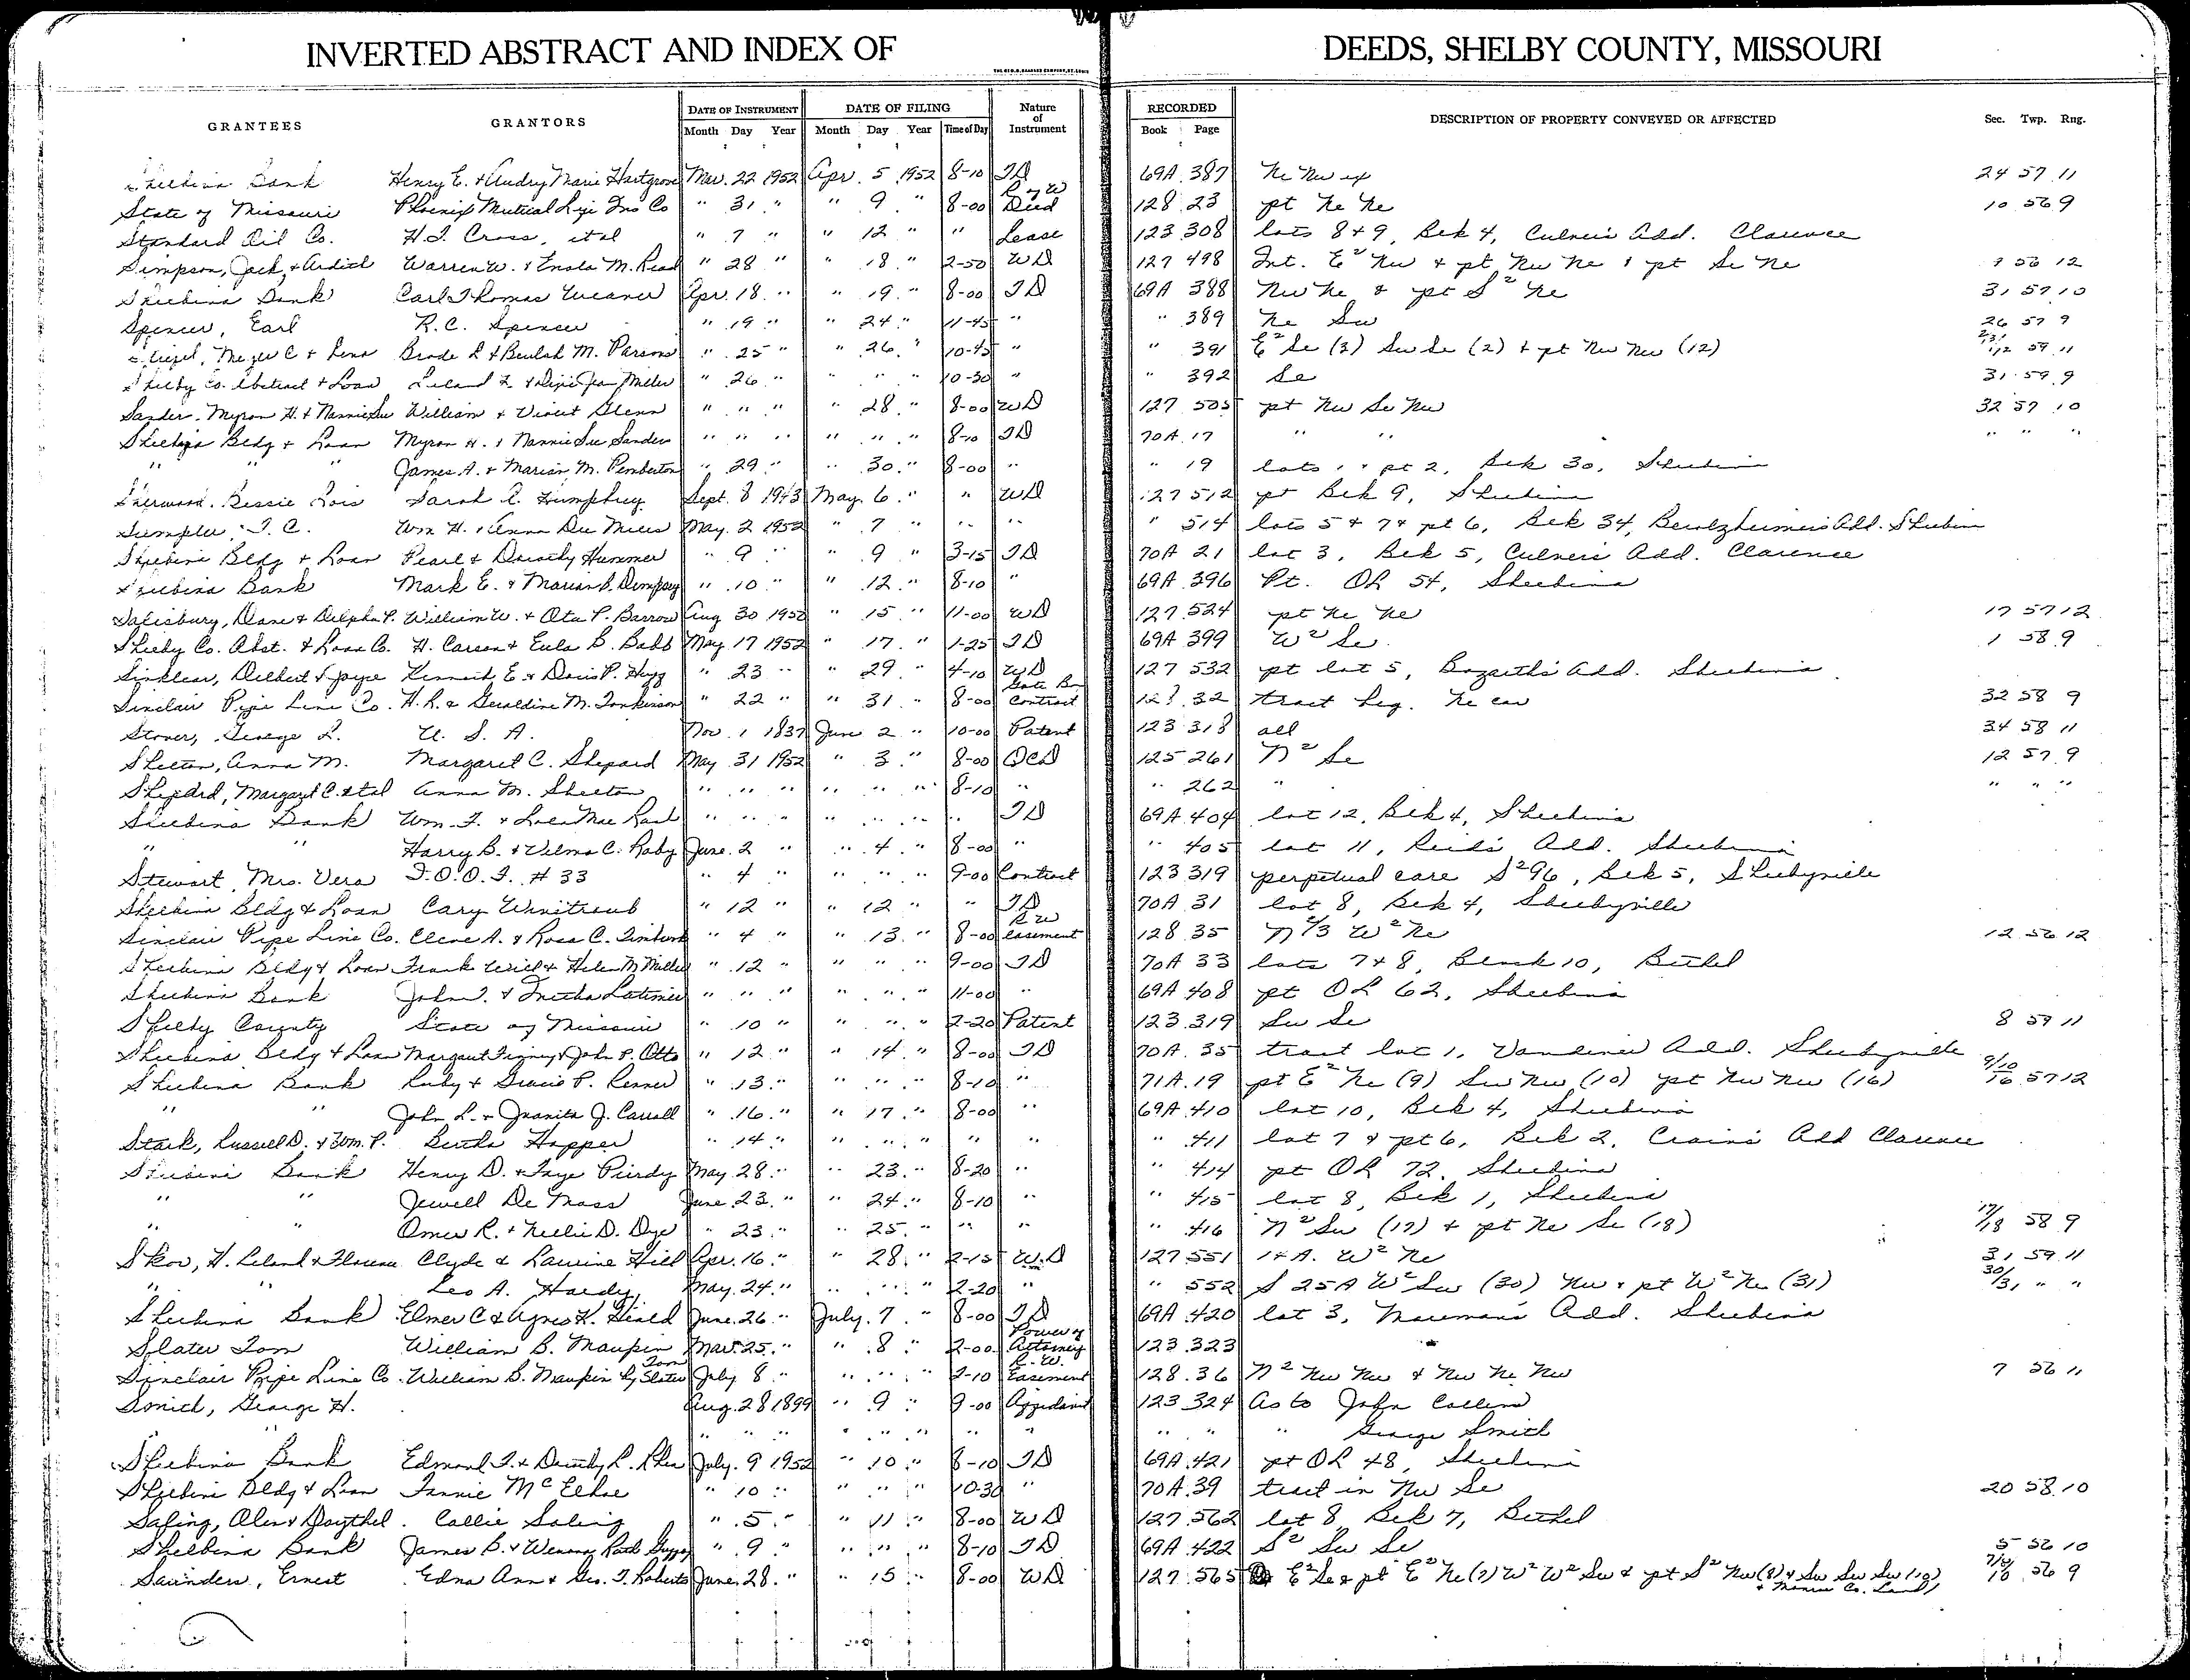 INVERTED ABSTRACT AND INDEX OF DEEDS, SHELBY COUNTY, MISSOURI
GRANTEES GRANTORS DATE OF INSTRUMENT DATE OF FILING Nature of Instrument RECORDED DESCRIPTION OF PROPERTY CONVEYED OR AFFECTED Sec. Twp. Rng.
Month Day Year Month Day Year Time of Day Book Page
Shelbina Bank Henry E. & Audry Marie Hartgrove Mar. 22 1952 Apr. 5 1952 8-10 TD 69A 387 Ne Nw ex 24 57 11
State of Missouri Phoenix Mutual Life Ins Co " 31 " " 9 " 8-00 R of W Deed 128 23 pt Ne Ne 10 56 9
Standard Oil Co. H.T. Cross, et al " 7 " " 12 " " Lease 123 308 lots 8 & 9, Blk 4, Culver's Add. Clarence
Simpson, Jack & Ardith Warren W. & Enola M. Read " 28 " " 18 " 2-50 WD 127 498 Int. E² Nw & pt Nw Ne & pt Se Ne 9 56 12
Shelbina Bank Carl Thomas Weaver Apr. 18 " " 19 " 8-00 TD 69A 388 Nw Ne & pt S² Ne 31 57 10
Spencer, Earl R.C. Spencer " 19 " " 24 " 11-45 " " 389 Ne Sw 26 57 9
C & Lena Brade L & Beulah M. Parsons " 25 " " 26 " 10-45 " " 391 E² Se (3) Sw Se (2) & pt Nw Nw (12) 59 11
Shelby Co. Abstract & Loan Leland F. & Jean Miller " 26 " " " " 10-50 " " 392 Se 31 59 9
Sander, Myron H. & Nannie Sue William & Violet Glenn " " " " 28 " 8-00 WD 127 505 pt Nw Se Nw 32 57 10
Shelbina Bldg & Loan Myron H. & Nannie Sue Sanders " " " " " " 8-10 TD 70A 17 " " " " "
" " " James A. & Marian M. Pemberton " 29 " " 30 " 8-00 " " 19 lots 1 & pt 2, Blk 30, Shelbina
Sherwood, Bessie Lois Sarah A. Humphrey Sept. 8 1943 May 6 " " WD 127 512 pt Blk 9, Shelbina
T. C. Wm H. & Anna Dee Miles May 2 1952 " 7 " " " " 514 lots 5 & 7 & pt 6, Blk 34, Berolzheimer's Add. Shelbina
Shelbina Bldg & Loan Pearl & Dorothy Hummer " 9 " " 9 " 3-15 TD 70A 21 lot 3, Blk 5, Culver's Add. Clarence
Shelbina Bank Mark E. & Marian S. Dempsey " 10 " " 12 " 8-10 " 69A 396 Pt. OL 54, Shelbina
Salisbury, Dane & Delpha P. William W. & Ota P. Barrow Aug 30 1950 " 15 " 11-00 WD 127 524 pt Ne Ne 17 57 12
Shelby Co. Abst. & Loan Co. H. Carson & Eula B. Babb May 17 1952 " 17 " 1-25 TD 69A 399 W² Se 1 58 9
Sinklear, Delbert & Joyce Kenneth E. & Doris P. " 23 " " 29 " 4-10 WD 127 532 pt lot 5, Bozarth's Add. Shelbina
Sinclair Pipe Line Co. H.R. & Geraldine M. Tonkinson " 22 " " 31 " 8-00 Contract 128 32 tract beg. Ne cor 32 58 9
Stoner, George L. U. S. A. Nov. 1 1837 June 2 " 10-00 Patent 123 318 all 34 58 11
Shelton, Anna M. Margaret C. Shepard May 31 1952 " 3 " 8-00 QCD 125 261 N² Se 12 57 9
Shepard, Margaret C. et al Anna M. Shelton " " " " " " 8-10 " " 262 " " " "
Shelbina Bank Wm. T. & Lola Mae Rash " " " " " " " TD 69A 404 lot 12, Blk 4, Shelbina
" " Harry B. & Velma C. Raby June 2 " " 4 " 8-00 " " 405 lot 11, Reid's Add. Shelbina
Stewart, Mrs. Vera I.O.O.F. #33 " 4 " " " " 9-00 Contract 123 319 perpetual care S² 96, Blk 5, Shelbyville
Shelbina Bldg & Loan Cary Winitroub " 12 " " 12 " " TD 70A 31 lot 8, Blk 4, Shelbyville
Sinclair Pipe Line Co. Cleve A. & Rosa C. " 4 " " 13 " 8-00 R W Easement 128 35 N ²/3 W² Ne 12 56 12
Shelbina Bldg & Loan Frank Will & Helen M Miller " 12 " " " " 9-00 TD 70A 33 lots 7 & 8, Block 10, Bethel
Shelbina Bank John T. & Latimer " " " " " " 11-00 " 69A 408 pt OL 62, Shelbina
Shelby County State of Missouri " 10 " " " " 2-20 Patent 123 319 Sw Se 8 59 11
Shelbina Bldg & Loan Margaret & John P. Otto " 12 " " 14 " 8-00 TD 70A 35 tract lot 1, Vandiver Add. Shelbyville
Shelbina Bank Ruby & P. Renner " 13 " " " " 8-10 " 71A 19 pt E² Ne (9) Sw Nw (10) pt Nw Nw (16) 9/10 16 57 12
" " John L. & Juanita J. Carroll " 16 " " 17 " 8-00 " 69A 410 lot 10, Blk 4, Shelbina
Stark, Russell D. & Wm. P. Bertha Hopper " 14 " " " " " " " 411 lot 7 & pt 6, Blk 2, Crain's Add Clarence
Shelbina Bank Henry D. & Faye Purdy May 28 " " 23 " 8-20 " " 414 pt OL 72, Shelbina
" " Jewell De Moss June 23 " " 24 " 8-10 " " 415 lot 8, Blk 1, Shelbina
" " Omer R. & Nellie D. Dye " 23 " " 25 " " " " 416 N² Sw (17) & pt Ne Se (18) 17/18 58 9
Skov, H. Leland & Florene Clyde & Laurine Hill Apr. 16 " " 28 " 2-15 W.D 127 551 14 A. W² Ne 31 59 11
" " Leo A. Hardy May 24 " " " " 2-20 " " 552 S 25A W² Sw (30) Nw & pt W² Ne (31) 30/31 " "
Shelbina Bank Elmer C & Agnes H. Heald June 26 " July 7 " 8-00 TD 69A 420 lot 3, Add. Shelbina
Slater Tom William B. Maupin Mar. 25 " " 8 " 2-00 Power of Attorney 123 323
Sinclair Pipe Line Co. William B. Maupin by Tom Slater July 8 " " " " 2-10 R. W. Easement 128 36 N² Nw Nw & Nw Ne Nw 7 56 11
Smith, George H. Aug. 28 1899 " 9 " 9-00 Affidavit 123 324 As to John Collins
" " " " " " " " " " " " " George Smith
Shelbina Bank Edmond F. & Dorothy L. Rhea July 9 1952 " 10 " 8-10 TD 69A 421 pt OL 48, Shelbina
Shelbina Bldg & Loan Fannie McElhoe " 10 " " " " 10-30 " 70A 39 tract in Nw Se 20 58 10
Saling, Olen & Doythel Callie Saling " 5 " " 11 " 8-00 WD 127 562 lot 8 Blk 7, Bethel
Shelbina Bank James B. & Wenona Ruth " 9 " " " " 8-10 TD 69A 422 S² Sw Se 5 56 10
Saunders, Ernest Edna Ann & Geo. T. Roberts June 28 " " 15 " 8-00 WD 127 565 E² Se & pt E² Ne (7) W² W² Sw & pt S² Nw (8) & Sw Sw Sw (10) 10 56 9
& Monroe Co. Land